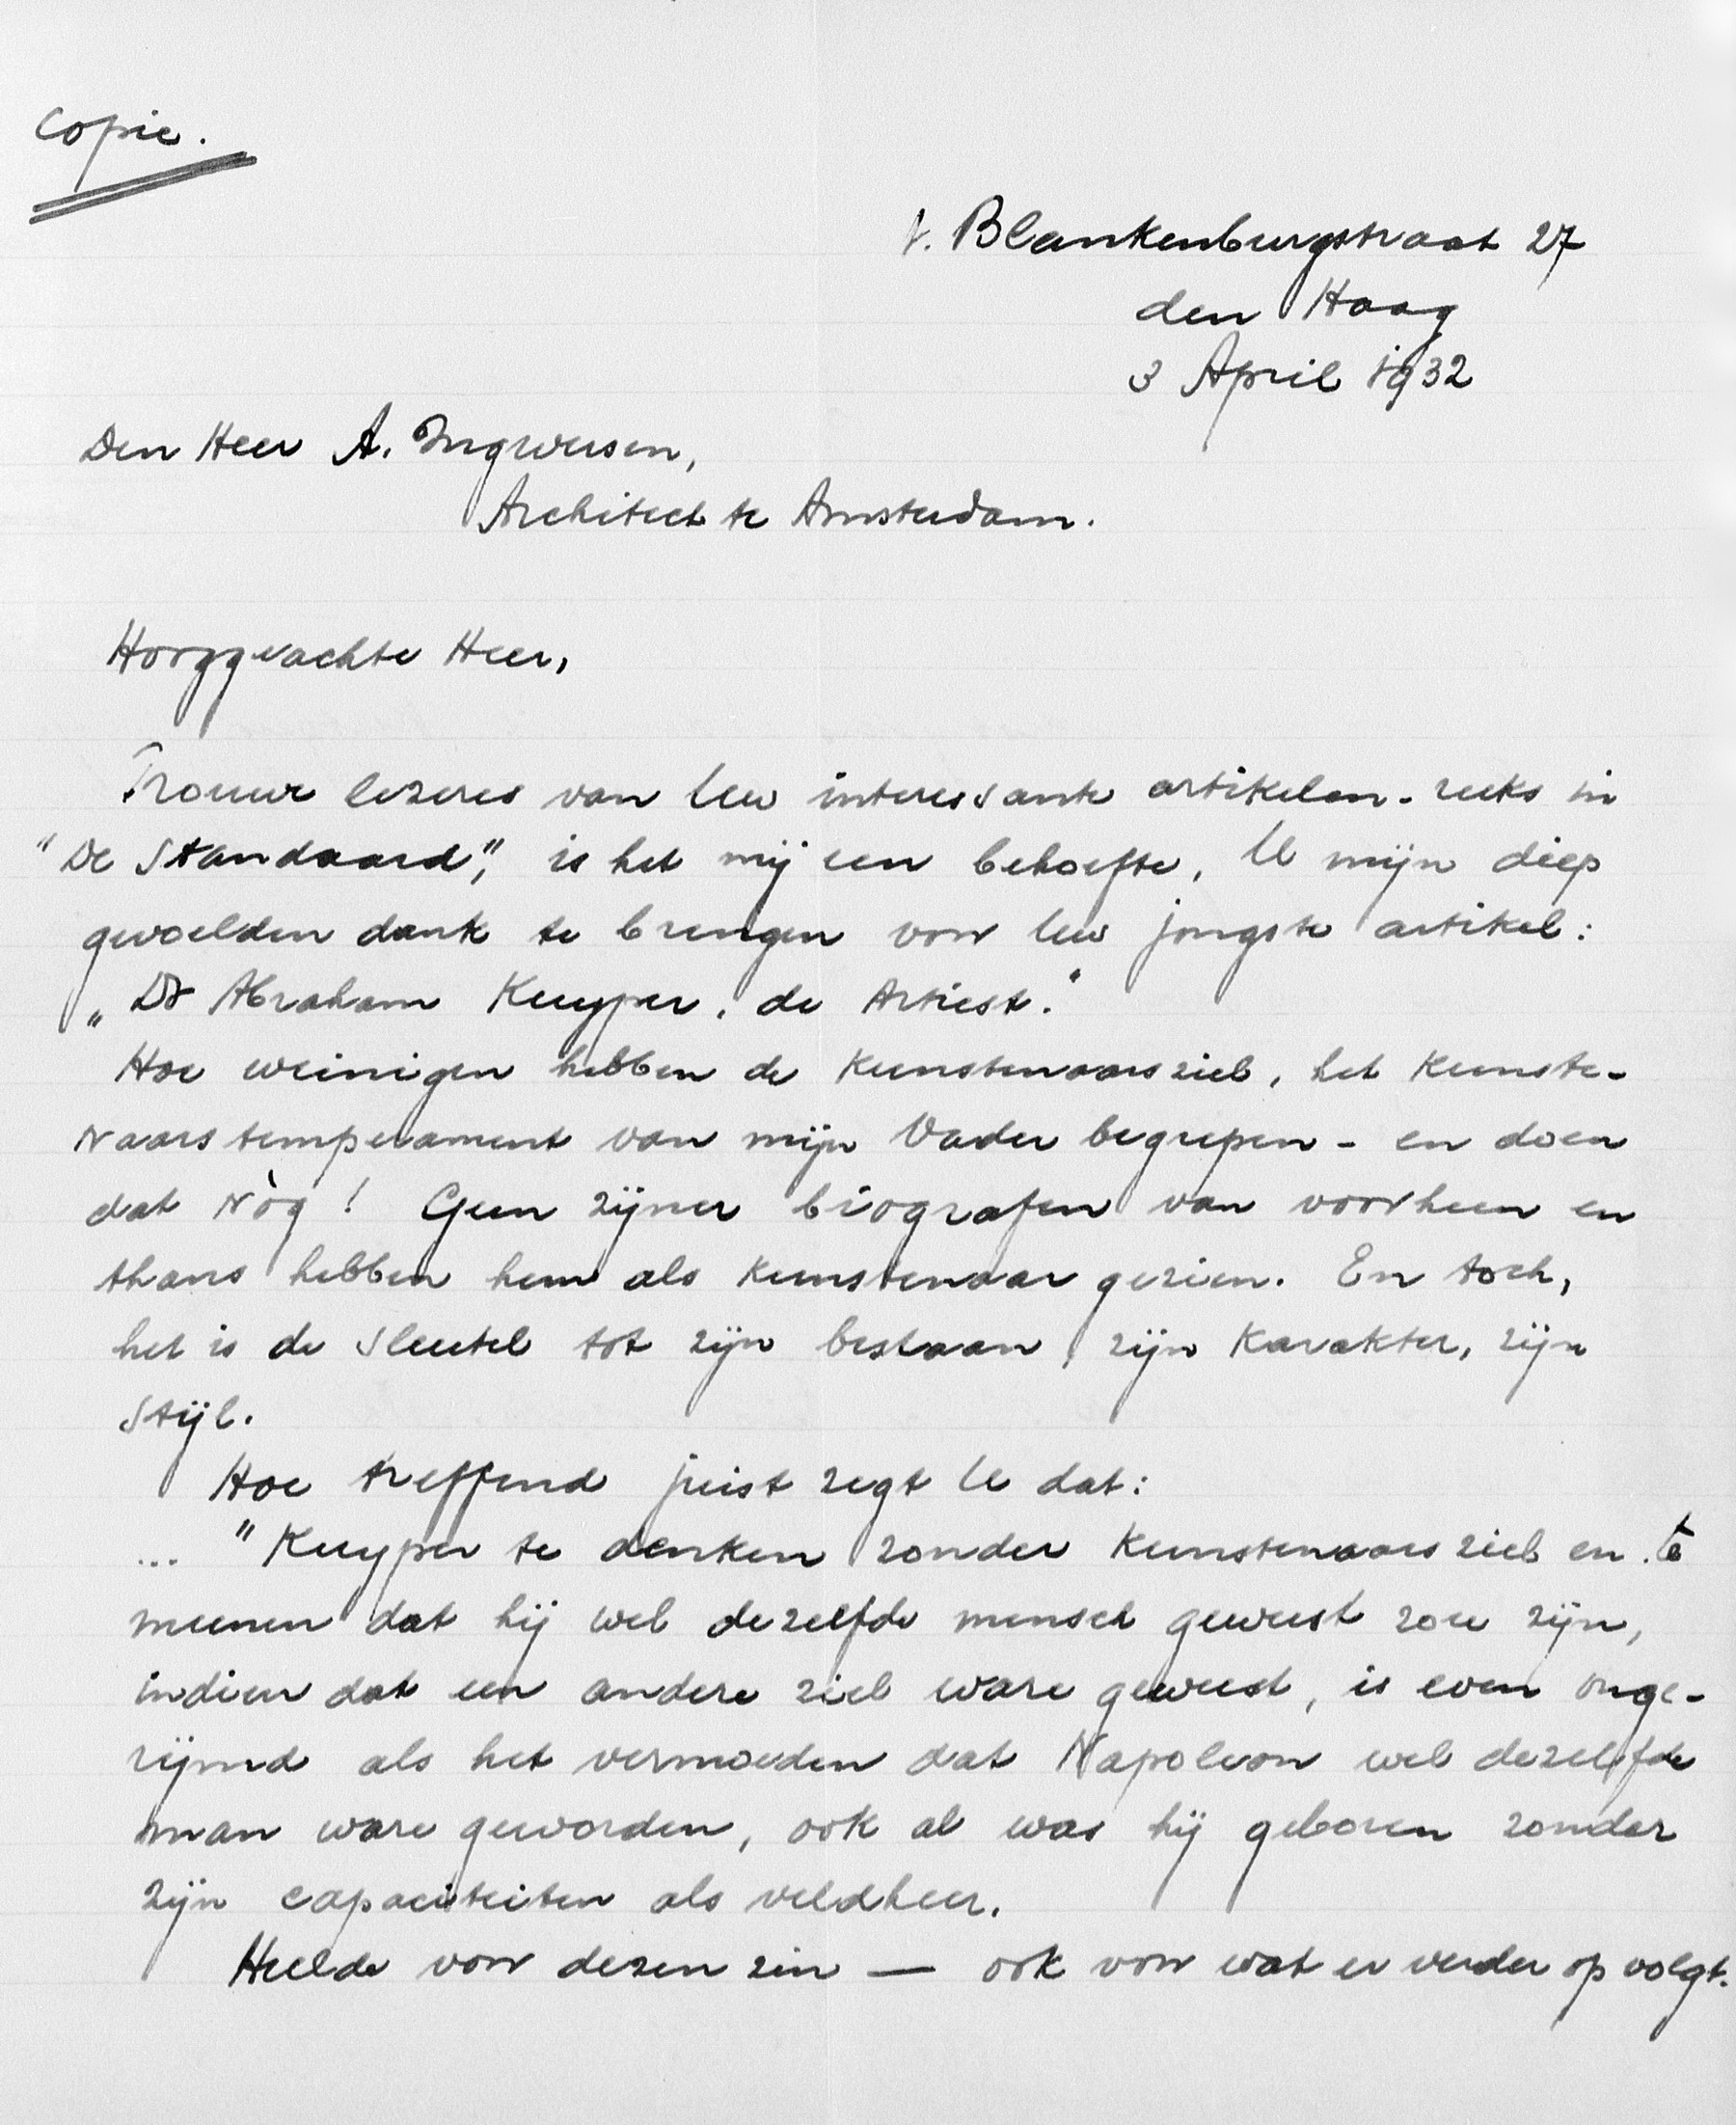 Copie.
v. Blankenburgstraat 27
den Haag
3 April 1932
Den Heer A. Ingwersen,
Architect te Amsterdam.
Hooggeachte Heer,
Trouwe lezeres van Uw interessante artikelen-reeks in
"De Standaard", is het mij een behoefte, U mijn diep
gevoelden dank te brengen voor Uw jongste artikel:
„Dr Abraham Kuyper, de Artiest."
Hoe weinigen hebben de kunstenaarsziel, het kunste-
naarstemperament van mijn Vader begrepen - en doen
dat nòg! Geen zijner biografen van voorheen en
thans hebben hem als kunstenaar gezien. En toch,
het is de sleutel tot zijn bestaan, zijn karakter, zijn
stijl.
Hoe treffend juist zegt U dat:
... "Kuyper te denken zonder kunstenaarsziel en te
meenen dat hij wel dezelfde mensch geweest zou zijn,
indien dat een andere ziel ware geweest, is even onge-
rijmd als het vermoeden dat Napoleon wel dezelfde
man ware geworden, ook al was hij geboren zonder
zijn capaciteiten als veldheer.
Hulde voor dezen zin — ook voor wat er verder op volgt.